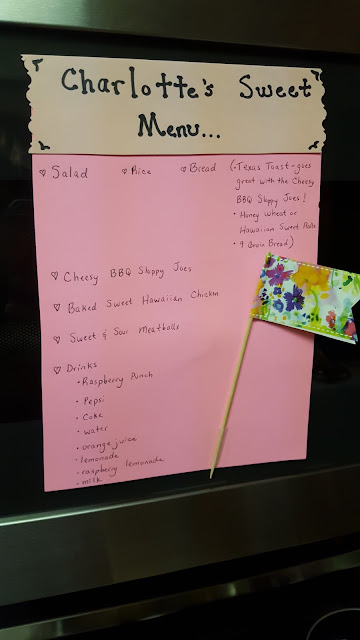 Charlotte's Sweet
Menu...
♡ Salad ♡ Rice ♡ Bread (•Texas Toast-goes
great with the Cheesy
BBQ Sloppy Joes!
• Honey Wheat or
Hawaiian Sweet Rolls
• 9 Grain Bread)
♡ Cheesy BBQ Sloppy Joes
♡ Baked Sweet Hawaiian Chicken
♡ Sweet & Sour Meatballs
♡ Drinks
• Raspberry Punch
• Pepsi
• Coke
• water
• orange juice
• lemonade
• raspberry lemonade
• milk